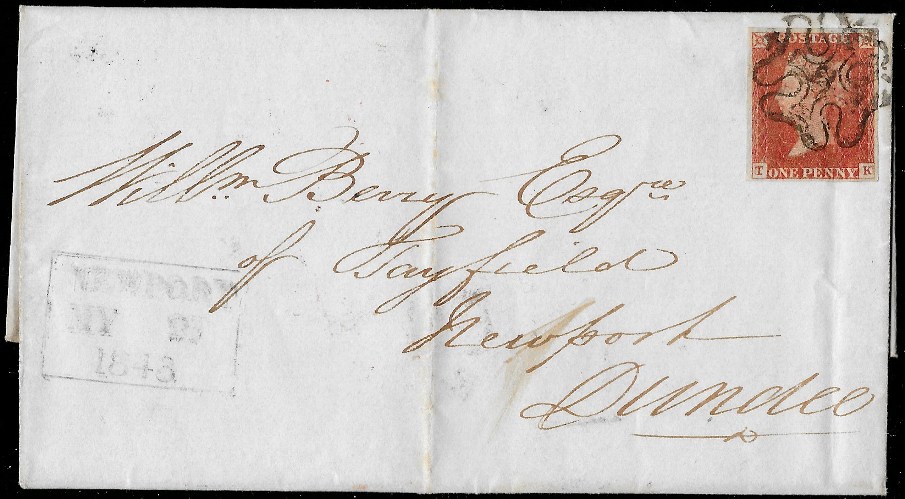 POSTAGE
T K
ONE PENNY
Will.m Berry Esq.re
of Tayfield
Newport
Dundee
MY
1843